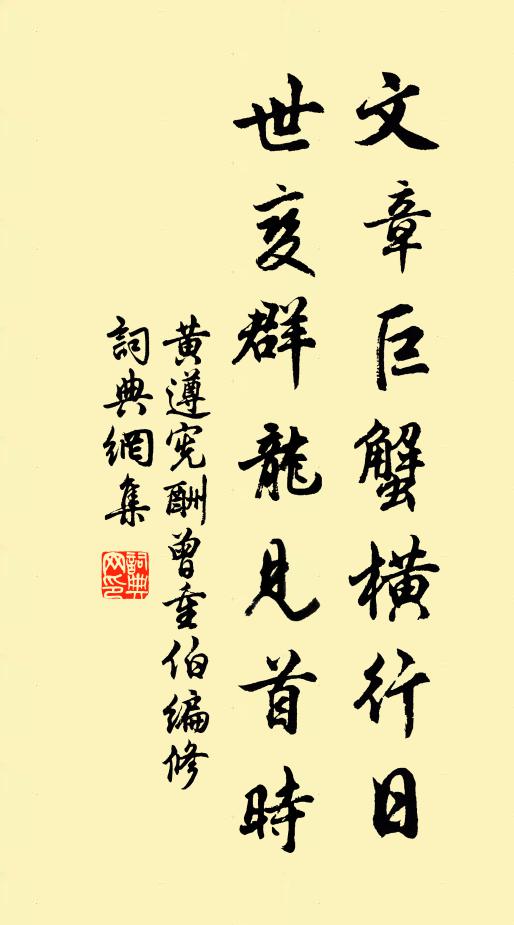 文章巨蟹橫行日
世变群龍見首時
黃遵宪酬曾重伯编修
詞典網集
詞典
网印